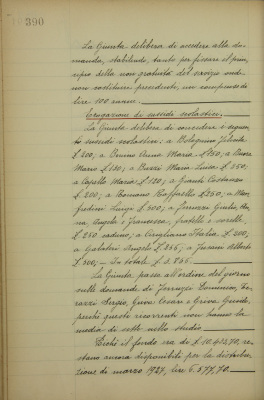 390
La Giunta delibera di accedere alla do-
manda, stabilendo, tanto per fissare il prin-
cipio della non gratuità del servizio onde
non costituire precedente, un compenso di
lire 100 annue.
Erogazione di sussidi scolastici.
La Giunta delibera di concedere i seguen-
ti sussidi scolastici: a Bolognini
£ 200, a Bruno Anna Maria £ 150, a
Mario £ 150, a Maria Luisa £ 350,
a Capello Maria £ 120, a Grandi Costanza
£ 200; a Romano Raffaella £ 250, a Man-
fredini Luigi £ 300; a Giulio, An-
na, Angelo e Francesco, fratelli e sorelle,
£ 250 caduno; a Cirigliano Italia £ 200,
a Galabri Angelo £ 355; a Alberto
£ 300, — In totale £ 3.855.
La Giunta passa all'ordine del giorno
sulle domande di Domenico,
Sergio, Cesare e Guido,
perchè questi ricorrenti non hanno la
media di sette nello studio
Poichè il fondo era di £ 10.432,70, re-
stano ancora disponibili per la distribu-
zione di marzo 1927, lire 6.577,70.